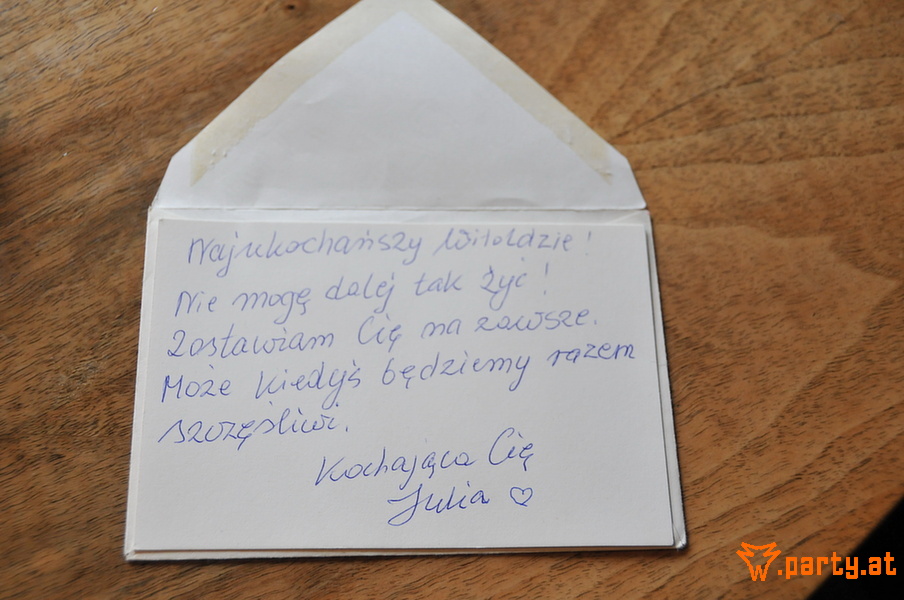 Najukochańszy Witoldzie!
Nie mogę dalej tak żyć!
Zostawiam Cię na zawsze.
Może kiedyś będziemy razem
szczęśliwi.
Kochająca Cię
Julia ♡
w.party.at